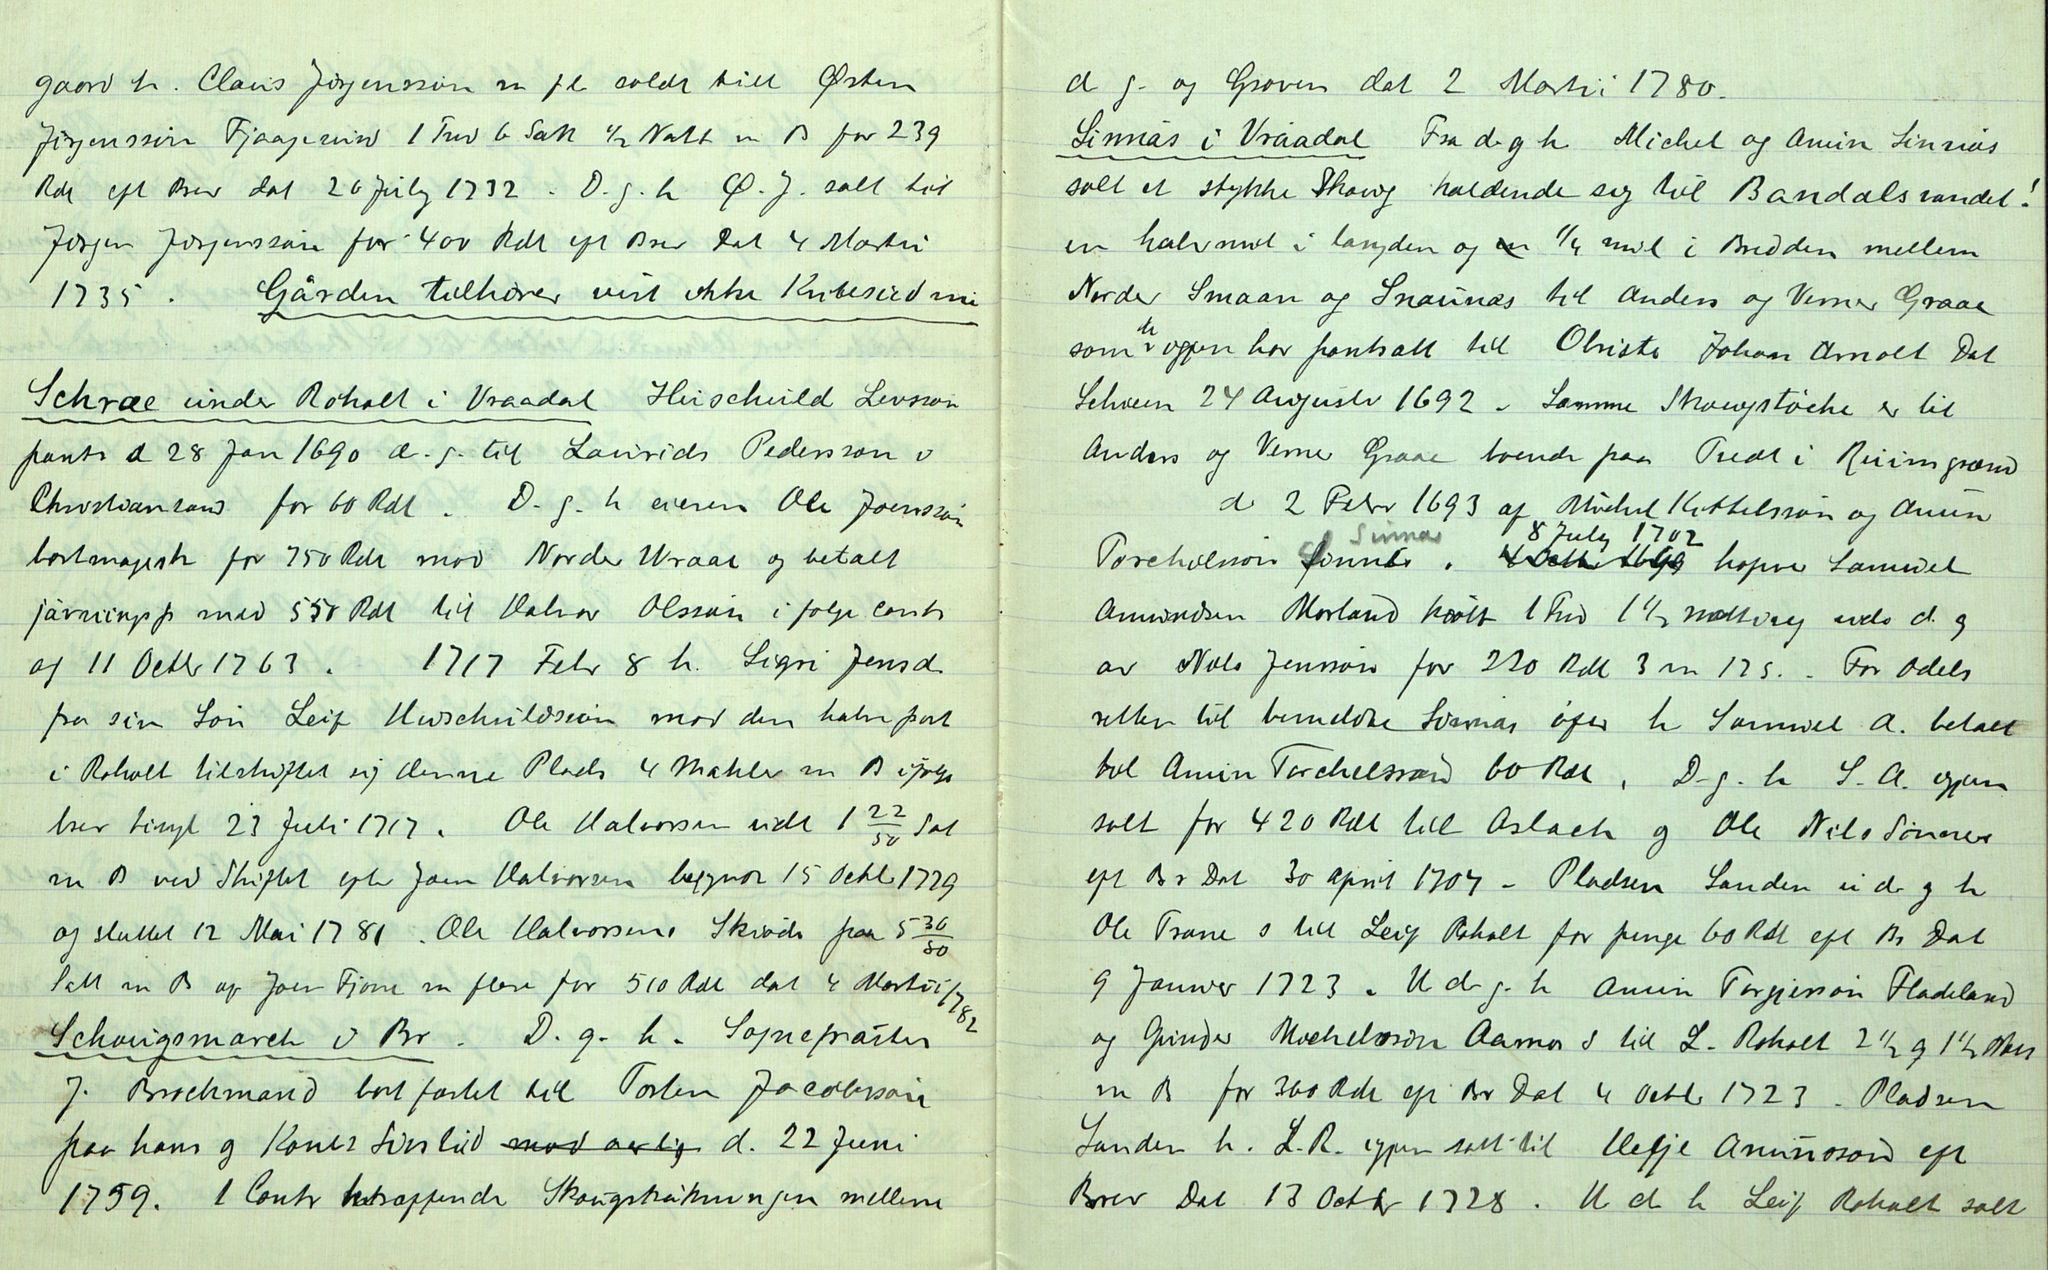 gaard h. Claus Jørgensson m fl soldt till Østen
Jörgensson Fjaagesund 1 Tnd 6 Sætt ½ Natt m B for 239
Rdt eft Brev dat 20 July 1732. D. g. h Ø. J. salt til
Jørgen Jørgenssøn for 400 Rdt eft Brev Dat 4 Martii
1735. Gården tilhører vist ikke Kviteseid
Schræe under Roholt i Vraadal Herschuld Levsson
pants d 28 Jan 1690 d. g. til Laurids Pedersson v
Christiansand for 60 Rdt. D. g. h eieren Ole Joensson
bortmagesk for 750 Rdt mod Norder Wraae og betalt
jævningsp med 550 Rdt til Halvor Olsson i følge contr
af 11 Octbr 1763. 1717 Febr 8 h. Sigri Jensd.
fra sin Søn Leif Herschuldsson mod den halve part
i Roholt tilskiftet sig denne Plads 4 Mæhler m B ifølge
brev tingl 23 Juli 1717. Ole Halvorsen udl 1 22/50 Sæt
m B ved Skiftet efter Joen Halvorsen begyndt 15 Octbr 1779
og sluttet 12 Mai 1781. Ole Halvorsens Skiøde paa 5 30/50
Sætt m B af Joen Fjone m flere for 510 Rdt dat 4 Martii 1782
Schougsmarck v Br. D. g. h. Sognepræsten
J. Brockmand bortfæstet till Torsten Jacobsson
paa hans g Kones Livstid mod aarlig d. 22 Juni
1759. 1 Contr betræffende Skougstrækningen mellem
d g. og Groven dat 2 Martii 1780.
Sinnäs i Vraadal Fra d. g h Michel og Amun Sinnäs
solt et stykke Skoug holdende sig til Bandalsvandet!
en halv mil i længden og en ¼ mil i Bredden mellem
Norder Smaan og Snaunæs til Anders og Verner Graae
som de igjen har pantsatt til Obriste Johan Arnolt Dat
Scheen 24 Augusti 1692. Samme Skougstöcke er til
Anders og Verner Graae boende paa Tvedt i Rüimgrend
d 2 Febr 1693 af Michel Kittelsson og Amun
Torchelsson Sinnes Sinnes. 8 July 1702 haver Samuel
Amundsen Morland kiøbt 1 Tnd 1½ nætting udi d. g
av Niels Jensson for 220 Rdt 3 m 12 s. For Odels
retten til bemeldte Sinnäs öfver h Samuel A. betalt
til Amun Torchelsson 60 Rdt. D. g. h S. A. igjen
solt for 420 Rdt till Aslach g Ole Nils Sönner
eft Br Dat 30 april 1704. Pladsen Sanden u d. g h
Ole Trane s till Leif Roholt for penge 60 Rdt eft Br Dat
9 Januar 1723. U d. g. h Amun Torgjersson Fladeland
og Gunder Michelsson Aamos S till L. Roholt 2½ g 1½
m B for 300 Rdt eft Br Dat 4 Octbr 1723. Pladsen
Sanden h. L. R. igjen salt til Helje Amundsøn eft
Brev Dat 13 Octbr 1728. U d h Leif Roholt solt